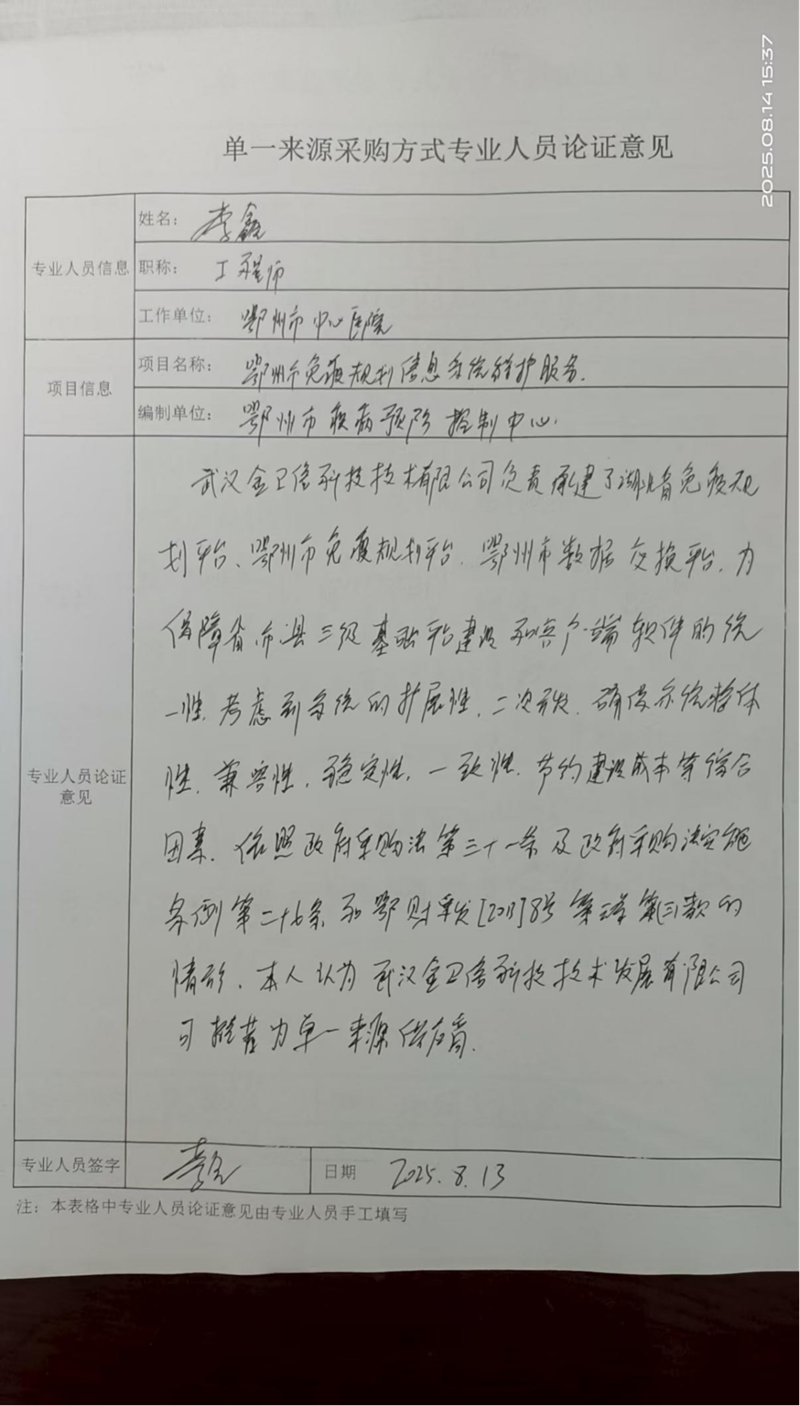 2025.08.14 15:37
单一来源采购方式专业人员论证意见
专业人员信息
姓名：李鑫
职称：工程师
工作单位：鄂州市中心医院
项目信息
项目名称：鄂州市免疫规划信息系统维护服务.
编制单位：鄂州市疾病预防控制中心.
专业人员论证
意见
武汉金卫信科技技术有限公司负责承建了湖北省免疫规
划平台、鄂州市免疫规划平台、鄂州市数据交换平台，为
保障省、市、县三级基础平台建设和客户端软件的统
一性.考虑到系统的扩展性、二次开发、确保系统整体
性、兼容性、稳定性、一致性、节约建设成本等综合
因素.依照政府采购法第三十一条及政府采购法实施
条例第二十七条和鄂财采发[2017]8号第 条第(三)款的
情形，本人认为武汉金卫信科技技术发展有限公司
可推荐为单一来源供应商.
专业人员签字
李鑫
日期 2025.8.13
注：本表格中专业人员论证意见由专业人员手工填写